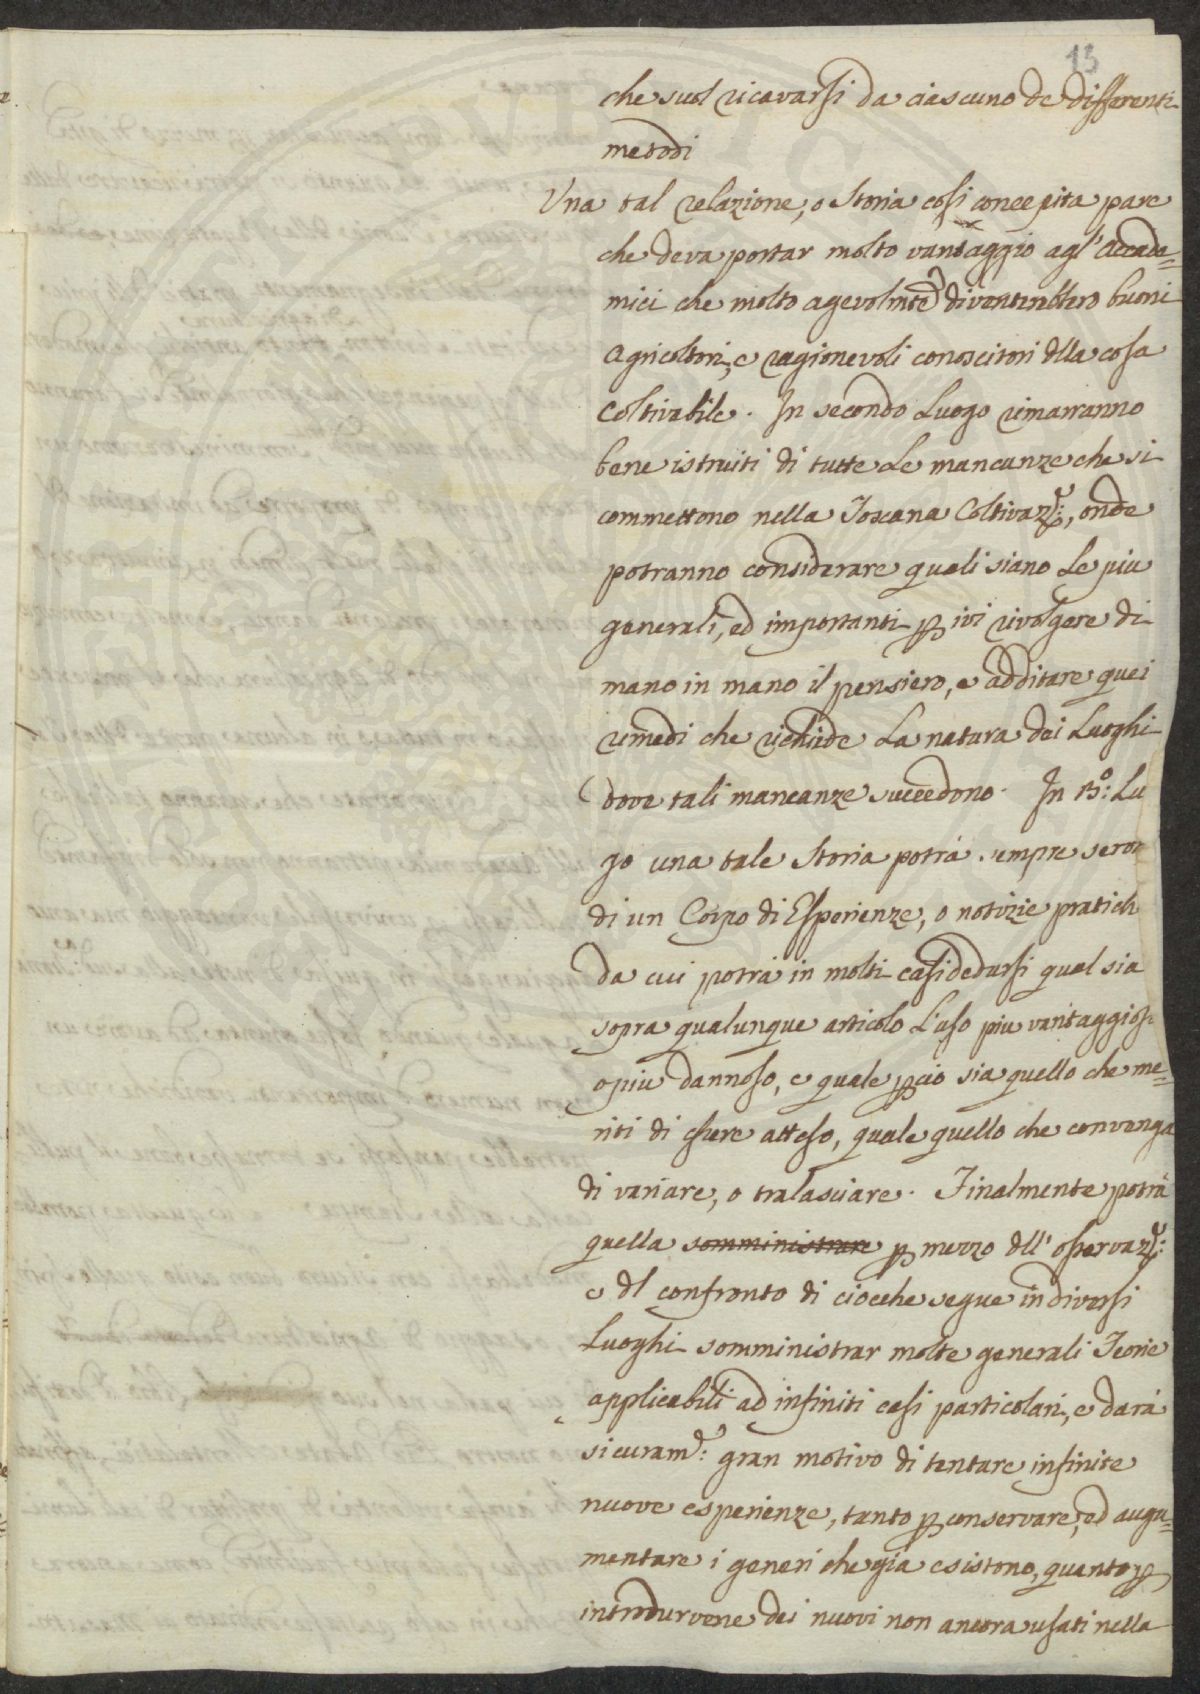 13
che suol ricavarsi da ciascuno de differenti
metodi
Una tal relazione, o Storia così concepita pare
che deva portar molto vantaggio agl' Accade=
mici che molto agevolmte diventerebbero buoni
Agricoltori, e ragionevoli conoscitori dlla cosa
Coltivabile. In secondo Luogo rimarranno
bene istruiti di tutte Le mancanze che si
commettono nella Toscana Coltivaze:, onde
potranno considerare quali siano Le piu
generali, ed importanti p ivi rivolgere di
mano in mano il pensiero, e additare quei
rimedi che richiede La natura dei Luoghi
dove tali mancanze succedono. In 3o: Lu
go una tale Storia potrà sempre
di un Corpo di Esperienze, o notizie pratich
da cui potrà in molti casi dedursi qual sia
sopra qualunque articolo L'uso piu vantaggios
o piu dannoso, e quale pciò sia quello che me=
riti di essere atteso, quale quello che convenga
di variare, o tralasciare. Finalmente potrà
quella somministrare p mezzo dll' osservaze:
e dl confronto di ciocche segue in diversi
Luoghi somministrar molte generali Teorie
applicabili ad infiniti casi particolari, e darà
sicuramte: gran motivo di tentare infinite
nuove esperienze, tanto p conservare, ed augu=
mentare i generi che già esistono, quanto p
introdurvene dei nuovi non ancora usati nella